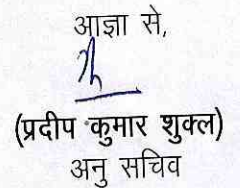 आज्ञा से,
(प्रदीप कुमार शुक्ल)
अनु सचिव